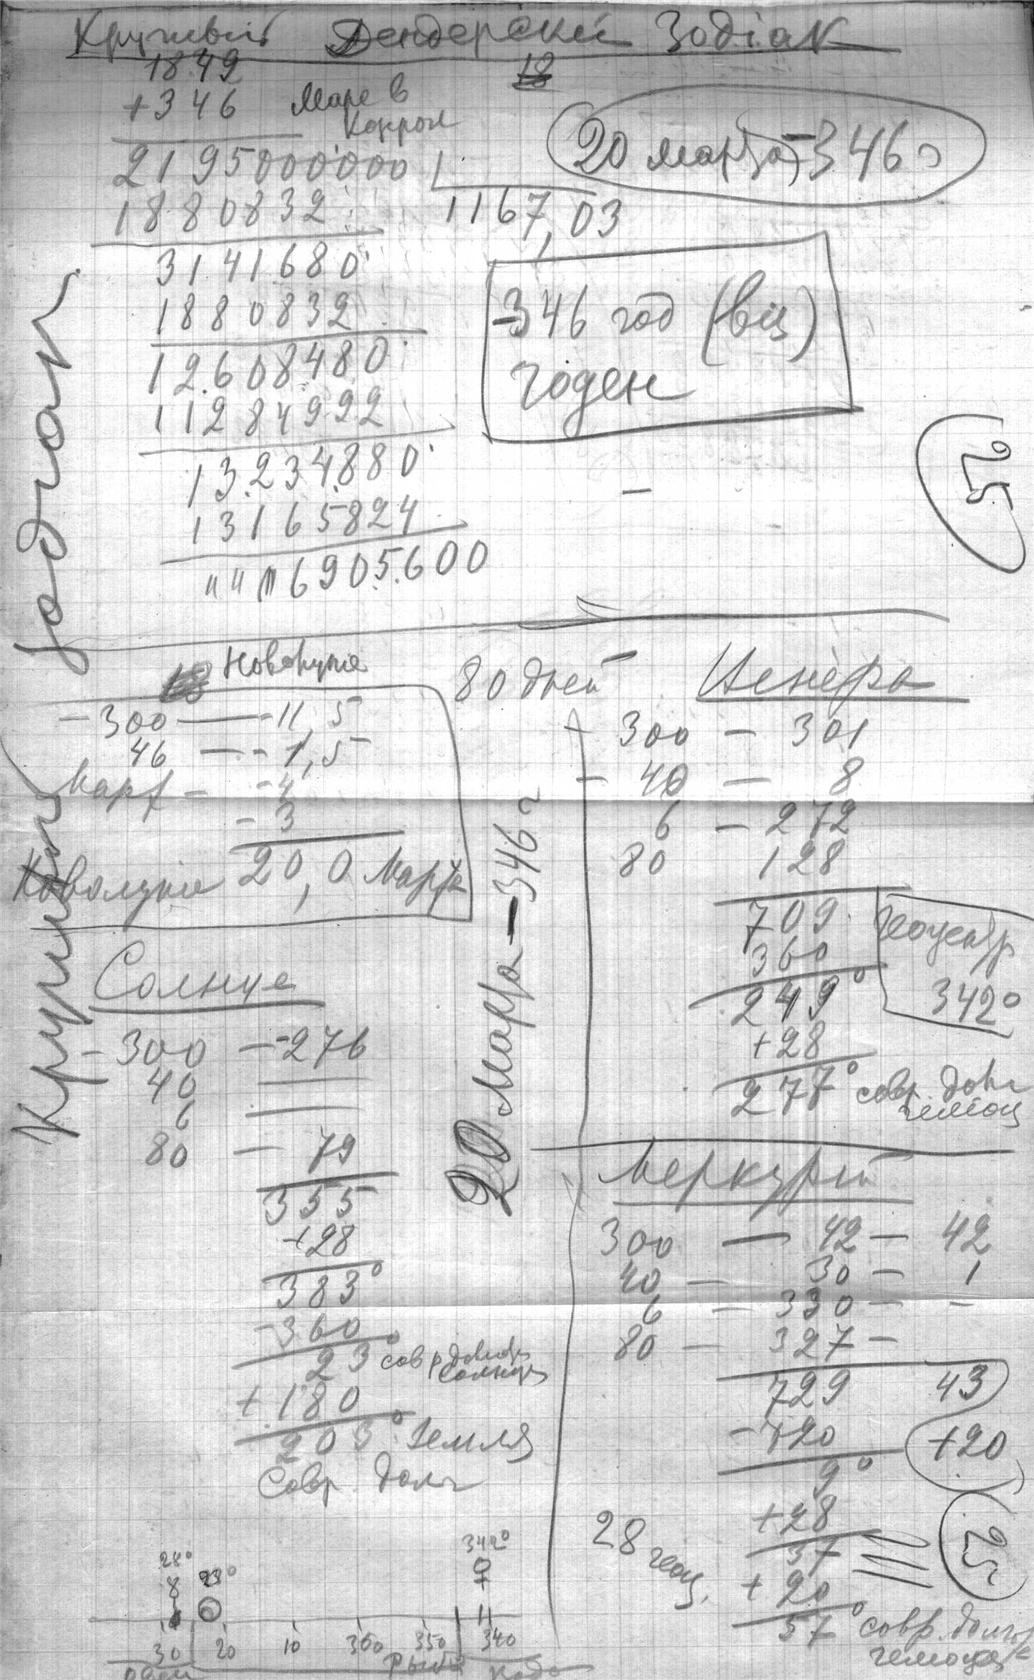 Круглый Дендерский Зодіак
1849
+346
Марс в
18
20 марта -346 г
2195000000
1880832
1167,03
3141680
1880832
12608480
11284992
13234880
13165824
6905600
-346 год (
годен
25
Зодіак
Круглый
Новолуние
-300 — -11,5
46 — -1,5
Март - -4
-3
Новолуние 20,0 Марта
80 дней
Венера
-300 — 301
-40 — 8
6 — 272
80 128
709
360
249°
+28
277° совр. долг
геоцентр
342°
20 Марта -346 г
Солнце
-300 — 276
40 —
6 —
80 — 79
355
+28
383°
-360
23° совр долг
солнца
+180
203° Земля
Совр. долг
Меркурий
300 — 42 — 42
40 — 30 — 1
6 — 330 — -
80 — 327 —
729 43
-720 +20
9°
+28
37
+20
57° совр. долг
25
28 геоц.
28°
23°
342°
30 20 10 360 350 340
Рыбы